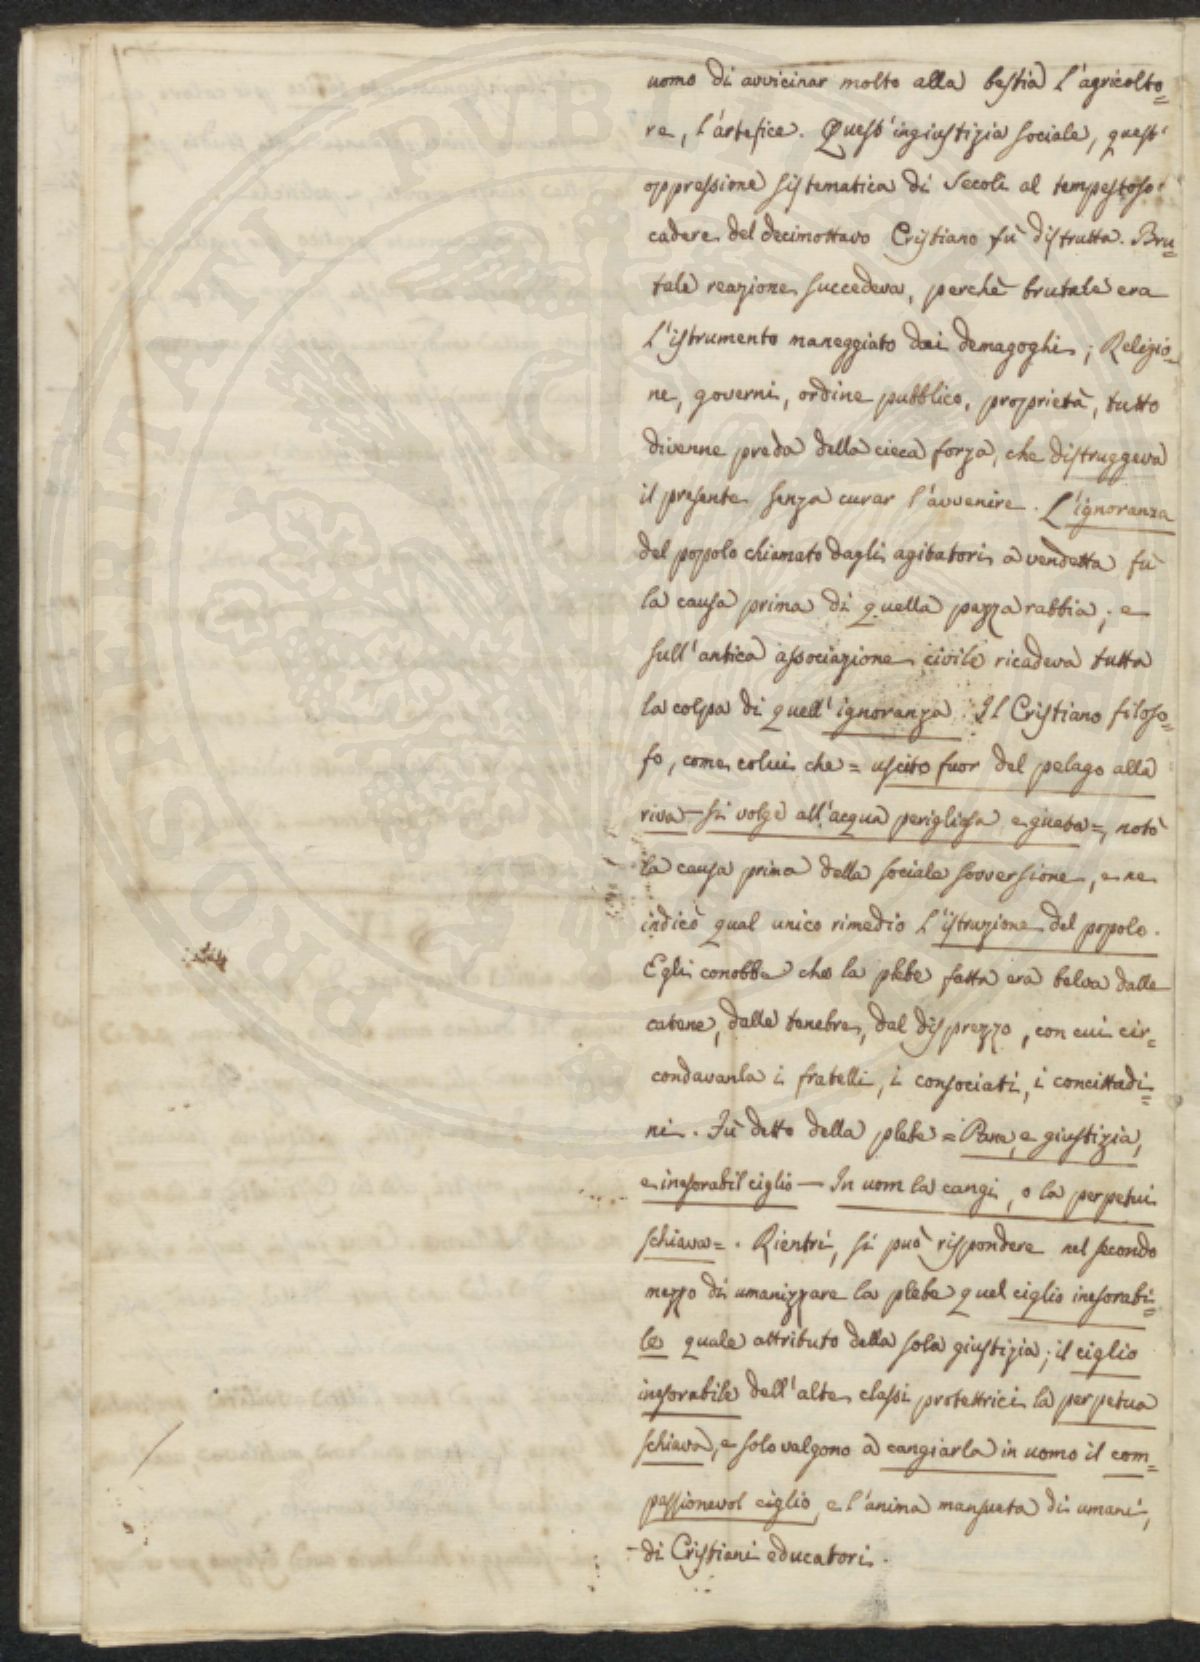 uomo di avvicinar molto alla bestia l'agricolto=
re, l'artefice. Quest'ingiustizia sociale, quest'
oppressione sistematica di secoli al tempestoso
cadere del decimottavo Cristiano fù distrutta. Bru=
tale reazione succedeva, perchè brutale era
l'istrumento maneggiato dai demagoghi; Religio=
ne, governi, ordine pubblico, proprietà, tutto
divenne preda della cieca forza, che distruggeva
il presente senza curar l'avvenire. L'ignoranza
del popolo chiamato dagli agitatori a vendetta fù
la causa prima di quella pazza rabbia; e
sull'antica associazione civile ricadeva tutta
la colpa di quell'ignoranza. Il Cristiano filoso=
fo, come colui che = uscito fuor del pelago alla
riva — si volge all'acqua perigliosa e guata =, notò
la causa prima della sociale sovversione, e ne
indicò qual unico rimedio l'istruzione del popolo.
Egli conobbe che la plebe fatta era belva dalle
catene, dalle tenebre, dal disprezzo, con cui cir=
condavanla i fratelli, i consociati, i concittadi=
ni. Fù detto della plebe = Pane, e giustizia,
e inesorabil ciglio — In uom la cangi, o la perpetui
schiava =. Rientri, si può rispondere nel secondo
mezzo di umanizzare la plebe quel ciglio inesorabi=
le quale attributo della sola giustizia; il ciglio
inesorabile dell'alte classi protettrici la perpetua
schiava, e solo valgono a cangiarla in uomo il com=
passionevol ciglio, e l'anima mansueta di umani,
di Cristiani educatori.
PROSPERITATI PVBLICAE